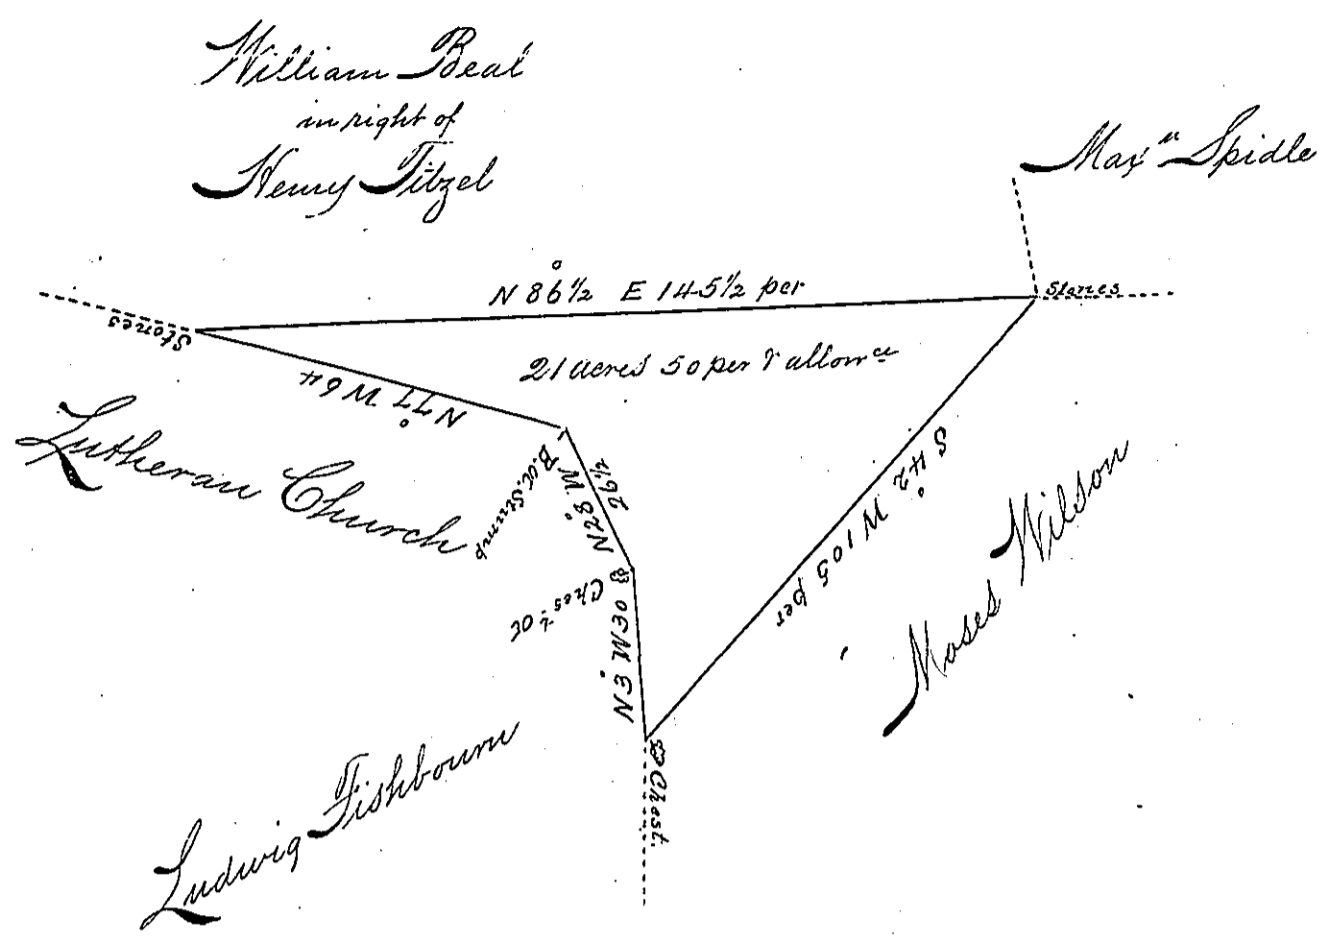 William Beal
in right of
Henry Titzel
Maxn Spidle
N 86½° E 145½ per
Stones
Stones
21 acres 50 per & allowce
N 77° W 64
Lutheran Church
B.O. Stump
N 28° W 26½
S 42° W 105 per
Moses Wilson
Chest Ok
N 3° W 30
Chest.
Ludwig Fishbourn